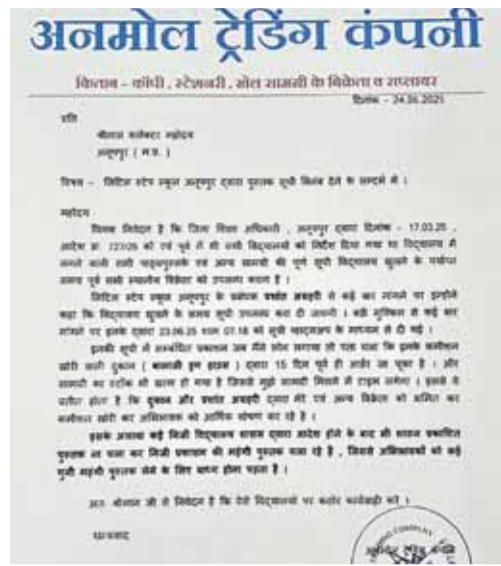 अनमोल ट्रेडिंग कंपनी
किताब - कॉपी, स्टेशनरी, खेल सामग्री के विक्रेता व सप्लायर
दिनांक - 24.06.2025
प्रति
श्रीमान कलेक्टर महोदय
अनूपपुर ( म.प्र. )
विषय - लिटिल स्टेप स्कूल अनूपपुर द्वारा पुस्तक सूची विलंब देने के सम्बन्ध में ।
महोदय
विनम्र निवेदन है कि जिला शिक्षा अधिकारी , अनूपपुर द्वारा दिनांक - 17.03.25 ,
आदेश क्र. 727/25 को एवं पूर्व में भी सभी विद्यालयों को निर्देश दिया गया था विद्यालय में
लगने वाली सभी पाठ्यपुस्तकें एवं अन्य सामग्री की पूर्ण सूची विद्यालय खुलने के पर्याप्त
समय पूर्व सभी स्थानीय विक्रेता को उपलब्ध कराना है ।
लिटिल स्टेप स्कूल अनूपपुर के प्रबंधक प्रशांत अवहरी से कई बार मांगने पर इन्होंने
कहा कि विद्यालय खुलने के समय सूची उपलब्ध करा दी जायेगी । बड़ी मुश्किल से कई बार
मांगने पर इनके द्वारा 23.06.25 शाम 07.18 को सूची व्हाट्सअप के माध्यम से दी गई ।
इनकी सूची में सम्बंधित प्रकाशन जब मैंने फोन लगाया तो पता चला कि इनके कमीशन
खोरी वाली दुकान ( बालाजी इन हाउस ) द्वारा 15 दिन पूर्व ही आर्डर जा चुका है । और
सामग्री का स्टॉक भी खत्म हो गया है जिससे मुझे सामग्री मिलने में टाइम लगेगा । इससे ये
प्रतीत होता है कि दुकान और प्रशांत अवहरी द्वारा मेरे एवं अन्य विक्रेता को भ्रमित कर
कमीशन खोरी कर अभिभावक को आर्थिक शोषण कर रहे है ।
इसके अलावा कई निजी विद्यालय शासन द्वारा आदेश होने के बाद भी शासन प्रकाशित
पुस्तक ना चला कर निजी प्रकाशन की महंगी पुस्तक चला रहे है , जिससे अभिभावकों को कई
गुनी महंगी पुस्तक लेने के लिए बाध्य होना पड़ता है ।
अतः श्रीमान जी से निवेदन है कि ऐसे विद्यालयों पर कठोर कार्यवाही करे ।
धन्यवाद
COMPANY